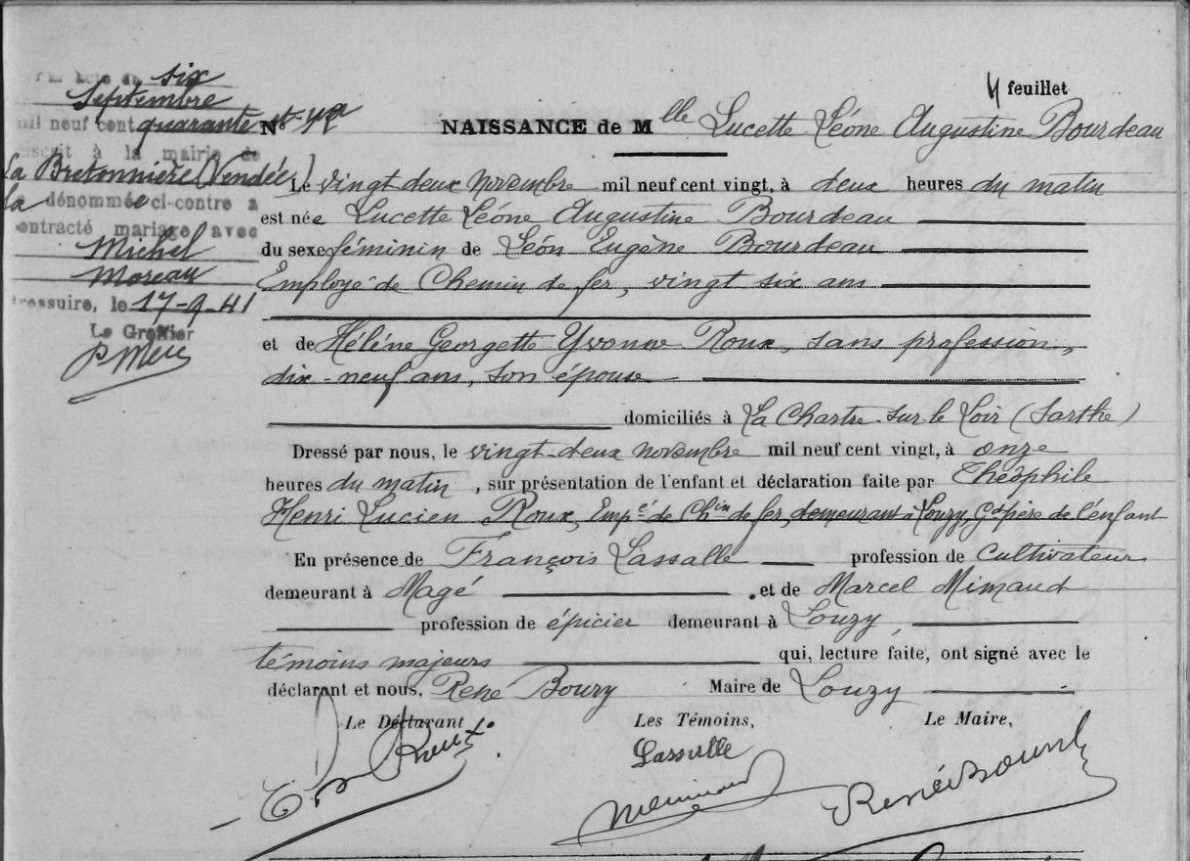 Par Acte du six
Septembre
mil neuf cent quarante
transcrit à la mairie de
la Bretonnière (Vendée)
la dénommée ci-contre a
contracté mariage avec
Michel
Moreau
Bressuire, le 17-9-41
Le Greffier
4 feuillet
NAISSANCE de Mlle Lucette Léone Augustine Bourdeau
Le vingt deux Novembre mil neuf cent vingt, à deux heures du matin
est née Lucette Léone Augustine Bourdeau
du sexe féminin de Léon Eugène Bourdeau
Employé de Chemin de fer, vingt six ans
et de Hélène Georgette Yvonne Roux, sans profession,
dix-neuf ans, son épouse
domiciliés à La Chartre-sur-le Loir (Sarthe)
Dressé par nous, le vingt-deux novembre mil neuf cent vingt, à onze
heures du matin, sur présentation de l'enfant et déclaration faite par Théophile
Henri Lucien Roux, Empé de Chin de fer, demeurant à Louzy, Gd père de l'enfant
En présence de François Lassalle profession de Cultivateur
demeurant à Magé et de Marcel Mimaud
profession de épicier demeurant à Louzy,
témoins majeurs qui, lecture faite, ont signé avec le
déclarant et nous, René Boury Maire de Louzy
Le Déclarant Les Témoins, Le Maire,
Roux Lassalle
Mimaud René Boury